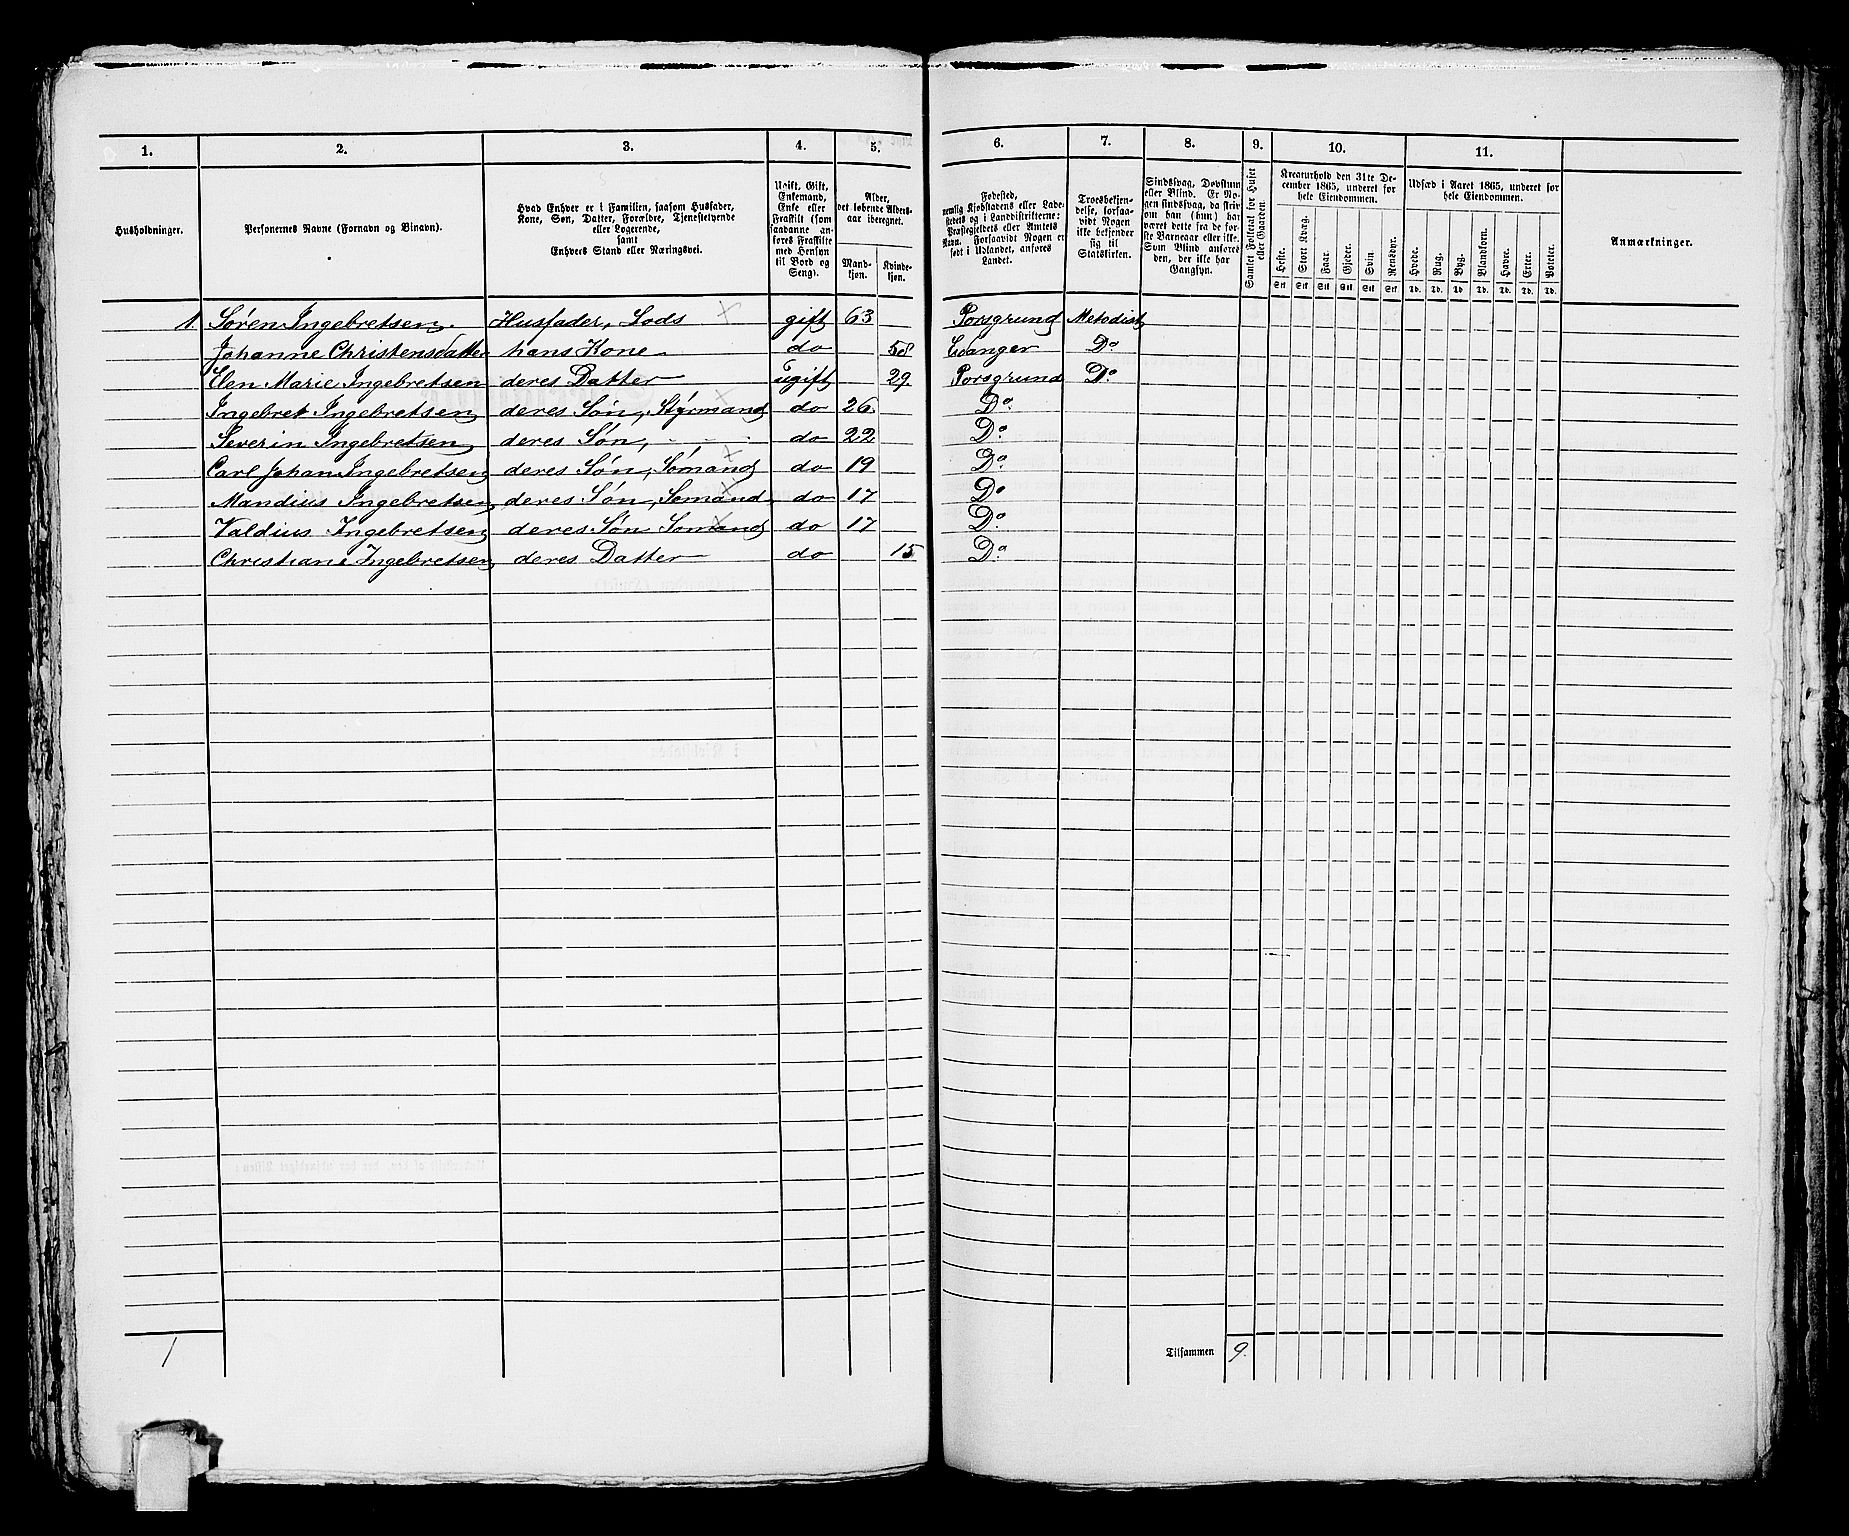 1. 2. 3. 4. 5. 6. 7. 8. 9. 10. 11.
Husholdninger.
Personernes Navne (Fornavn og Binavn).
Hvad Enhver er i Familien, saasom Husfader,
Kone, Søn, Datter, Forældre, Tjenestetyende
eller Logerende,
samt
Enhvers Stand eller Næringsvei.
Ugift, Gift,
Enkemand,
Enke eller
Fraskilt (som
saadanne an-
føres Fraskilte
med Hensyn
til Bord og
Seng).
Alder,
det løbende Alders-
aar iberegnet.
Mand-
kjøn.
Kvinde-
kjøn.
Fødested,
nemlig Kjøbstadens eller Lade-
stedets og i Landdistrikterne:
Præstegjeldets eller Amtets
Navn. Forsaavidt Nogen er
født i Udlandet, anføres
Landet.
Troesbekjen-
delse, forsaa-
vidt Nogen
ikke bekjender
sig til
Statskirken.
Sindssvag, Døvstum
eller Blind. (Er No-
gen sindssvag, da skriv
om han (hun) har
været dette fra de før-
ste Barneaar eller ikke.
Som Blind anføres
den, der ikke har
Gangsyn.
Samlet Folketal for Huset
eller Gaarden.
Kreaturhold den 31te De-
cember 1865, underet for
hele Eiendommen.
Heste. Stort Kvæg. Faar. Gjeder. Svin. Rensdyr.
Stk Stk Stk Stk Stk Stk
Udsæd i Aaret 1865, underet for
hele Eiendommen.
Hvede. Rug. Byg. Blandkorn. Havre. Erter. Poteter.
Td. Td. Td Td. Td. Td. Td.
Anmærkninger.
1. Søren Ingebretsen. Husfader, Lods gift 63 Porsgrund Metodist
Johanne Christensdatter hans Kone do 58 Eidanger Do
Elen Marie Ingebretsen deres Datter ugift 29 Porsgrund Do.
Ingebret Ingebretsen deres Søn, Styrmand do 26. Do.
Severin Ingebretsen deres Søn, - - - do 22 Do.
Carl Johan Ingebretsen deres Søn, Sømand do 19 Do.
Mandius Ingebretsen deres Søn, Sømand do 17 Do
Valdius Ingebretsen deres Søn Sømand do 17 Do.
Christiane Ingebretsen deres Datter do 15 Do.
1
Tilsammen 9.